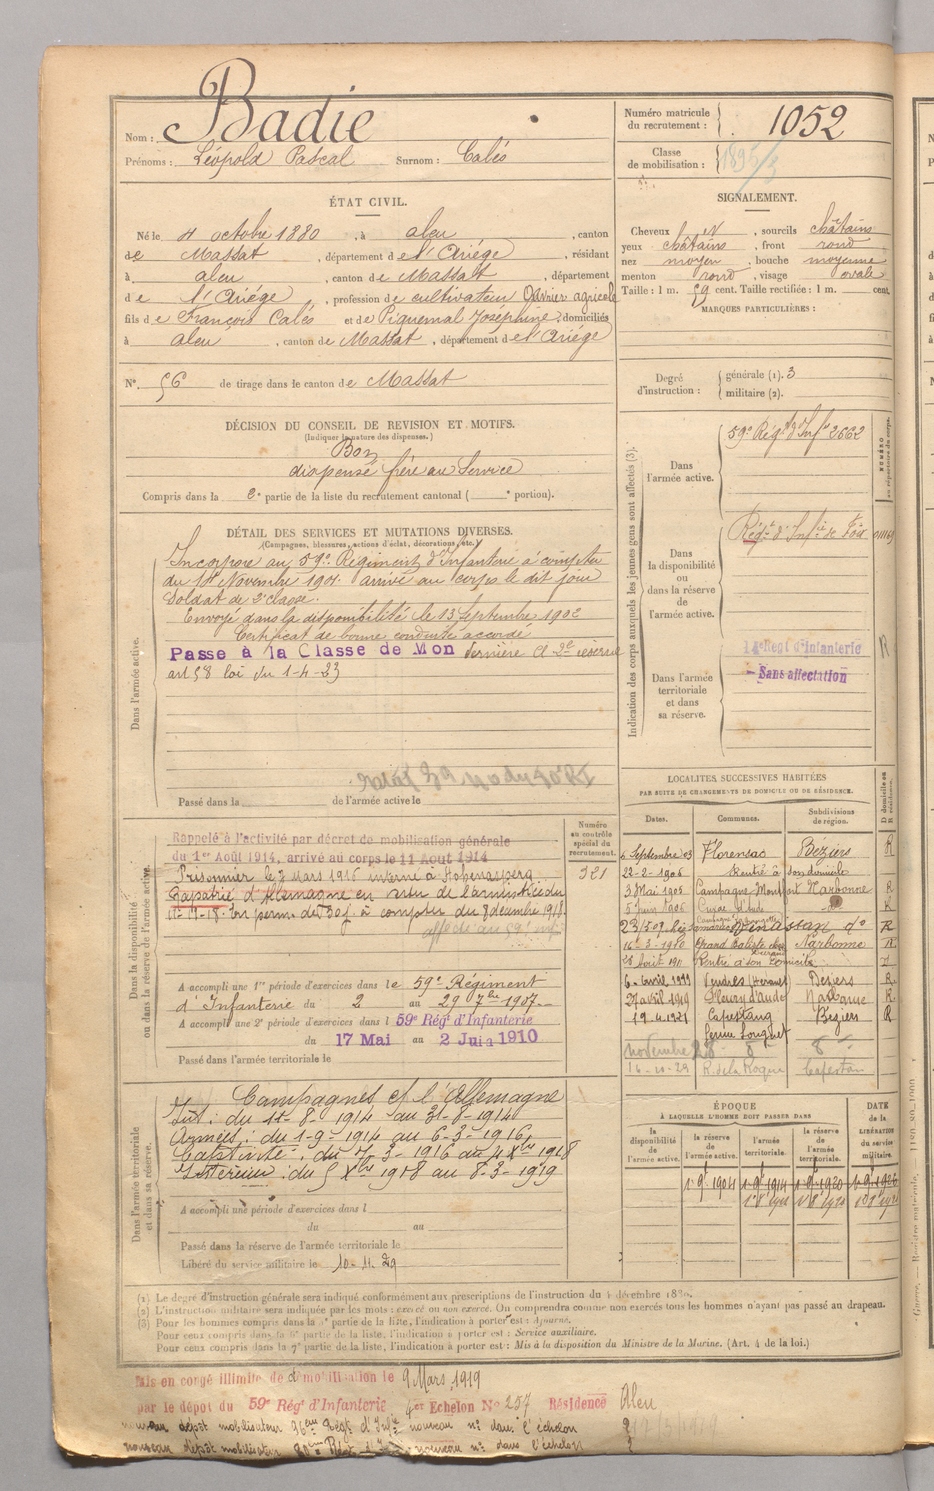 Nom : Badie
Prénoms : Léopold Pascal Surnom : Calés
Numéro matricule du recrutement : 1052
Classe de mobilisation :
ÉTAT CIVIL.
Né le 4 octobre 1880, à aleu, canton
de Massat, département de l'Ariége, résidant
à aleu, canton de Massat, département
de l'Ariége, profession de cultivateur Ouvrier agricole
fils de François Calés et de Piquemal Joséphine, domiciliés
à aleu, canton de Massat, département de l'Ariége
N° 56 de tirage dans le canton de Massat
SIGNALEMENT.
Cheveux N, sourcils châtains
yeux châtains, front rond
nez moyen, bouche moyenne
menton rond, visage ovale
Taille : 1 m. 59 cent. Taille rectifiée : 1 m. cent.
MARQUES PARTICULIÈRES :
Degré d'instruction : générale (1). 3
militaire (2).
DÉCISION DU CONSEIL DE REVISION ET MOTIFS.
(Indiquer la nature des dispenses.)
Bon
dispensé frère au Service
Compris dans la 2e partie de la liste du recrutement cantonal ( e portion).
DÉTAIL DES SERVICES ET MUTATIONS DIVERSES.
(Campagnes, blessures, actions d'éclat, décorations, etc.)
Dans l'armée active.
Incorporé au 59e Régiment d'Infanterie à compter
du 14 Novembre 1901. arrivé au corps le dit jour
Soldat de 2e classe.
Envoyé dans la disponibilité le 13 Septembre 1902
Certificat de bonne conduite accordé
Passé à la Classe de Mon dernière Cl 2e réserve
art 58 loi du 1-4-23
Passé dans la de l'armée active le
Indication des corps auxquels les jeunes gens sont affectés (3).
Dans l'armée active.
59e Régt d'Infie 2662
NUMÉRO au répertoire du corps.
Dans la disponibilité ou dans la réserve de l'armée active.
Régt d'Infie de Foix
Dans l'armée territoriale et dans sa réserve.
14e Régt d'Infanterie
Sans affectation
Dans la disponibilité ou dans la réserve de l'armée active.
Numéro au contrôle spécial du recrutement.
321
Rappelé à l'activité par décret de mobilisation générale
du 1er Août 1914, arrivé au corps le 11 Aout 1914
Prisonnier le 7 Mars 1916 interné à Hohenasperg
Rapatrié d'Allemagne en vertu de l'armistice du
11-11-18. En perm de 30 j. à compter du 8 décembre 1918.
affecté au 59e inf
A accompli une 1re période d'exercices dans le 59e Régiment
d'Infanterie du 2 au 29 7bre 1907
A accompli une 2e période d'exercices dans l 59e Régt d'Infanterie
du 17 Mai au 2 Juin 1910
Passé dans l'armée territoriale le
LOCALITÉS SUCCESSIVES HABITÉES
PAR SUITE DE CHANGEMENTS DE DOMICILE OU DE RÉSIDENCE.
Dates. Communes. Subdivisions de région. D domicile ou R résidence.
6 Septembre 03 Florensac Béziers R
22-2-1905 Rentré à son domicile
3 Mai 1905 Campagne Montfort Narbonne R
5 Juin 1906 Cuxac d'Aude do R
Vinassan do R
16-3-1910 Grand Narbonne R
Août 1911 Rentré à son domicile D
6 avril 1919 Vendres (Hérault) Béziers R
27 avril 1919 Fleury d'aude Narbonne R
19-4-1921 Capestang Béziers R
ferme Longuet
novembre 28
16-10-29 R. de la Roque Capestang
Dans l'armée territoriale et dans sa réserve.
Campagnes c/ l'Allemagne
Int : du 11-8-1914 au 31-8-1914
Armées : du 1-9-1914 au 6-3-1916
Captivité : du 7-3-1916 au 4 Xbre 1918
Intérieur : du 5 Xbre 1918 au 8-3-1919
A accompli une période d'exercices dans l
du au
Passé dans la réserve de l'armée territoriale le
Libéré du service militaire le 10-11-29
ÉPOQUE
À LAQUELLE L'HOMME DOIT PASSER DANS
la disponibilité de l'armée active. la réserve de l'armée active. l'armée territoriale. la réserve de l'armée territoriale.
DATE de la LIBÉRATION du service militaire.
1-9-1904 1-9-1914 1-9-1920 1-9-1926
(1) Le degré d'instruction générale sera indiqué conformément aux prescriptions de l'instruction du 4 décembre 1889.
(2) L'instruction militaire sera indiquée par les mots : exercé ou non exercé. On comprendra comme non exercés tous les hommes n'ayant pas passé au drapeau.
(3) Pour les hommes compris dans la 5e partie de la liste, l'indication à porter est : Ajourné.
Pour ceux compris dans la 6e partie de la liste, l'indication à porter est : Service auxiliaire.
Pour ceux compris dans la 7e partie de la liste, l'indication à porter est : Mis à la disposition du Ministre de la Marine. (Art. 4 de la loi.)
Mis en congé illimité de démobilisation le 9 Mars 1919
par le dépot du 59e Régt d'Infanterie 4er Echelon No 257 Résidence Aleu
nouveau dépôt mobilisateur 96eme Régt d'Infie nouveau no dans l'échelon
nouveau dépôt mobilisateur nouveau no dans l'échelon